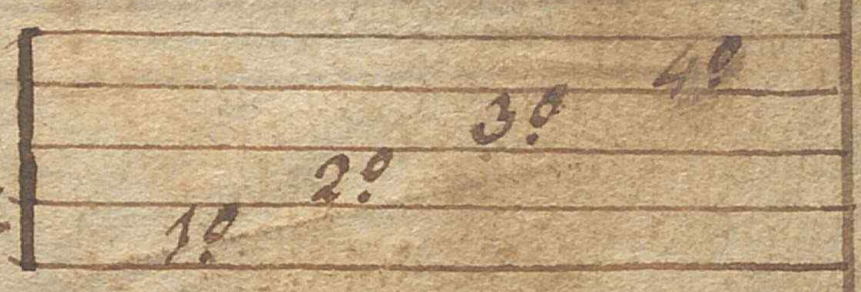 1º 2º 3º 4º